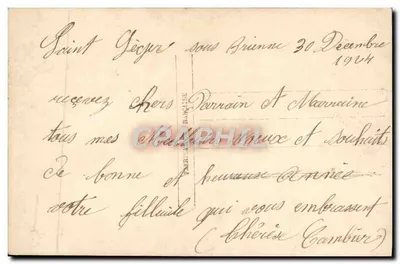 Saint Léger sous Brienne 30 Décembre
1924
recevez chers Parrain et Marraine
tous mes Meilleurs Voeux et souhaits
de bonne et heureuse Année
votre filleule qui vous embrassent
(Thérèse Cambur)